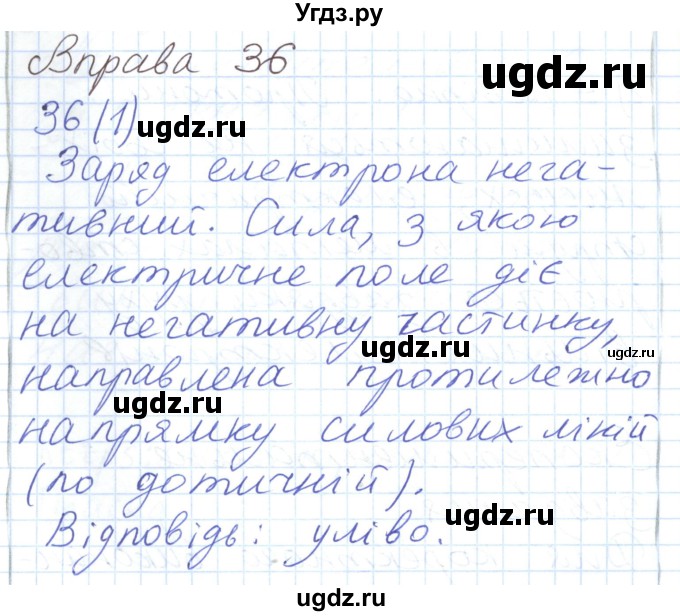 Угдз.ру
Вправа 36
ugdz.ru
36(1) ugdz.ru
Заряд електрона нега-
тивний. Сила, з якою
електричне поле діє
на негативну частинку,
ugdz.ru
ugdz.ru
направлена протилежно
ugdz.ru
напрямку силових ліній
(по дотичній).
Відповідь: уліво.
ugdz.ru
ugdz.ru